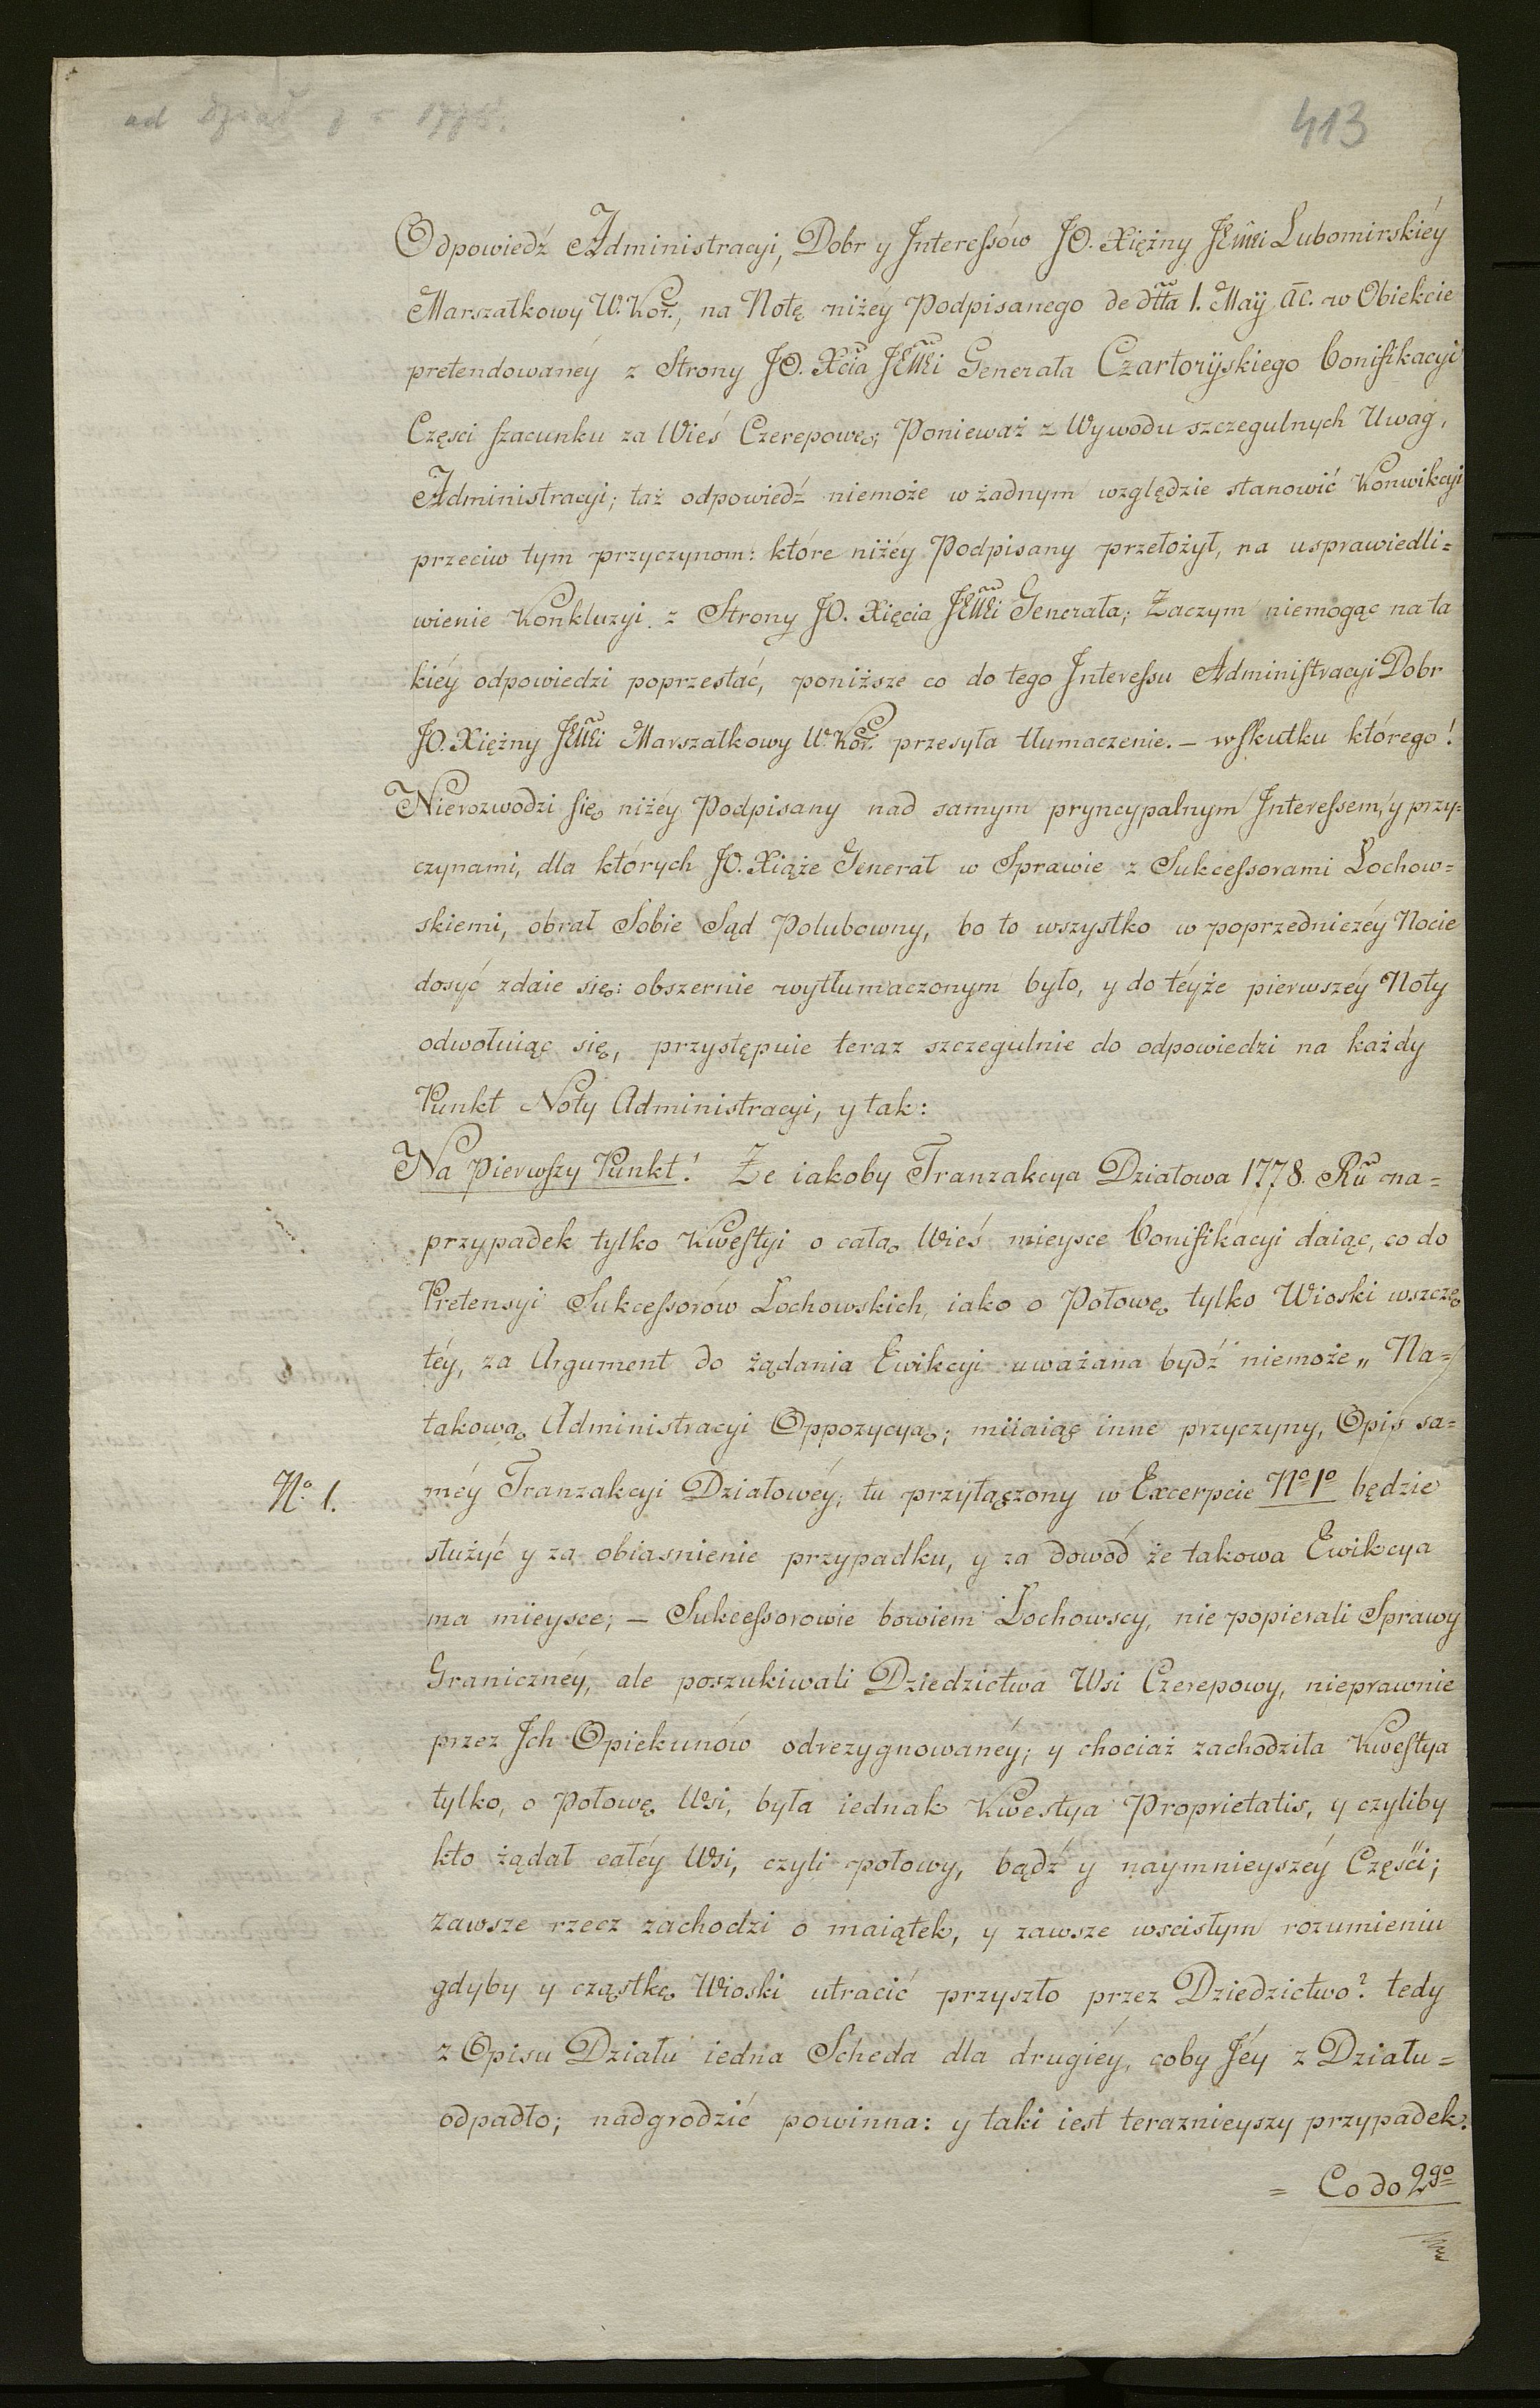 413
Odpowiedź Administracyi, Dobr y Interessów JO. Xiężny JEMci Lubomirskiéy
Marszałkowy W. Kor., na Notę niżéy Podpisanego de dtta 1. Maÿ ac. w Obiekcie
pretendowanéy z Strony JO. Xcia JEMci Generała Czartoryskiego bonifikacyi
Częsci szacunku za Wieś Czerepowę; Ponieważ z Wywodu szczegulnych Uwag,
Administracyi; taż odpowiedź niemoże w żadnym względzie stanowić Konwikcyi
przeciw tym przyczynom: które niżéy Podpisany przełożył, na usprawiedli=
wienie Konkluzyi z Strony JO. Xięcia JEMci Generała; Zaczym niemogąc na ta
kiéy odpowiedzi poprzestać, poniższe co do tego Interessu Administracyi Dobr
JO. Xiężny JEMci Marszałkowy W. Kor. przesyła tłumaczenie. – w skutku którego!
Nierozwodzi się niżéy Podpisany nad samym pryncypalnym Interessem, y przy=
czynami, dla których JO. Xiąże Generał w Sprawie z Sukcessorami Lochow=
skiemi, obrał Sobie Sąd Polubowny, bo to wszystko w poprzedniczéy Nocie
dosyć zdaie się: obszernie wytłumaczonym było, y do téyże pierwszéy Noty
odwołuiąc się, przystępuie teraz szczegulnie do odpowiedzi na każdy
Punkt Noty Administracyi, y tak:
Na Pierwszy Punkt! Że iakoby Tranzakcya Działowa 1778. Ru na=
przypadek tylko Kwestyi o całą Wieś mieysce bonifikacyi daiąc, co do
Pretensyi Sukcessorów Lochowskich, iako o Połowę tylko Wioski wszczę
téy, za Argument do żądania Ewikcyi uważana bydź niemoże „ Na=
takową Administracyi Oppozycyą; miiaiąc inne przyczyny, Opis sa=
No. 1.
méy Tranzakcyi Działowéy, tu przyłączony w Excerpcie No 1o będzie
służyć y za obiasnienie przypadku, y za dowód że takowa Ewikcya
ma mieysce; – Sukcessorowie bowiem Lochowscy, nie popierali Sprawy
Granicznéy, ale poszukiwali Dziedzictwa Wsi Czerepowy, nieprawnie
przez Ich Opiekunów odrezygnowanéy; y chociaż zachodziła Kwestya
tylko, o Połowę Wsi, była iednak Kwestya Proprietatis, y czyliby
kto żądał całéy Wsi, czyli połowy, bądź y naymnieyszéy Części;
zawsze rzecz zachodzi o maiątek, y zawsze wscisłym rozumieniu
gdyby y cząstkę Wioski utracić przyszło przez Dziedzictwo? tedy
z Opisu Działu iedna Scheda dla drugiéy, coby Jéy z Działu=
odpadło; nadgrodzić powinna: y taki iest teraznieyszy przypadek.
= Co do 2go